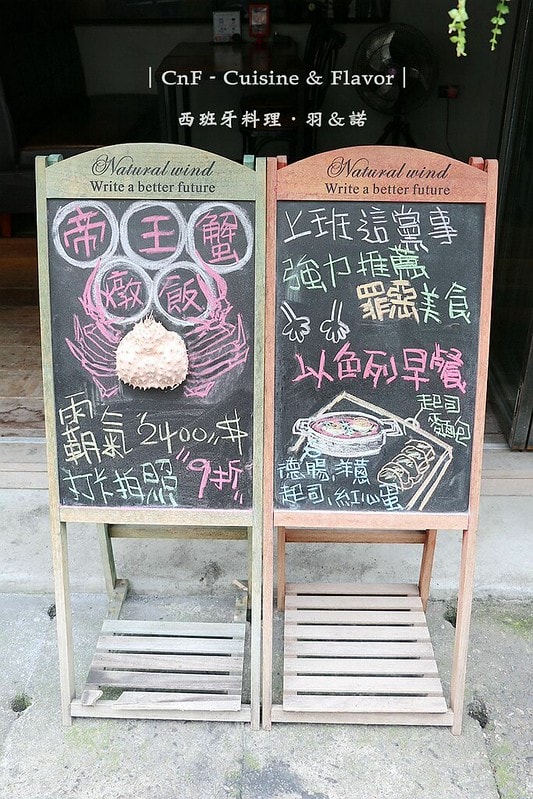 | CnF - Cuisine & Flavor |
西班牙料理・羽&諾
Natural wind
Write a better future
帝王蟹
燉飯
霸氣 2400,,$
打卡拍照 "9折"
Natural wind
Write a better future
上班這黨事
強力推薦
罪惡美食
以色列早餐
起司
麵包
德腸,洋蔥
起司,紅心蛋